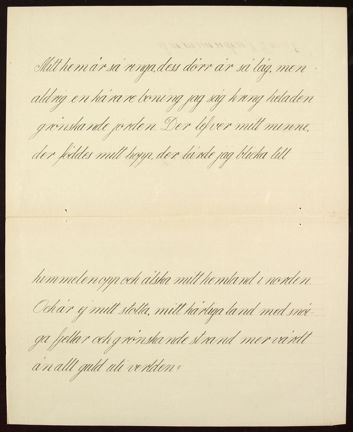 Mitt hem är så ringa, dess dörr är så låg, men
aldrig en kärare boning jag såg kring hela den
grönskande jorden. Der lefver mitt minne,
der föddes mitt hopp, der lärde jag blicka till
himmelen opp och älska mitt hemland i norden.
Och är ej mitt stolta, mitt härliga land med snöi-
ga fjellar och grönskande strand mer värdt
än allt guld uti verlden?